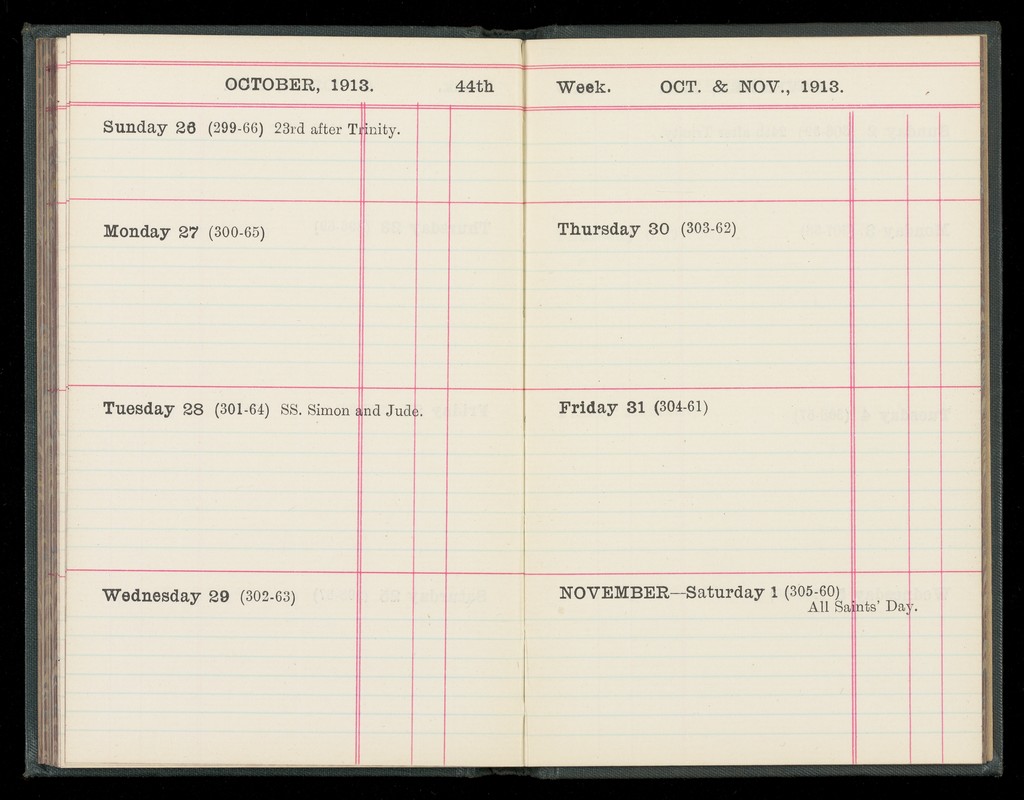 OCTOBER, 1913. 44th
Sunday 26 (299-66) 23rd after Trinity.
Monday 27 (300-65)
Tuesday 28 (301-64) SS. Simon and Jude.
Wednesday 29 (302-63)
Week. OCT. & NOV., 1913.
Thursday 30 (303-62)
Friday 31 (304-61)
NOVEMBER—Saturday 1 (305-60)
All Saints' Day.